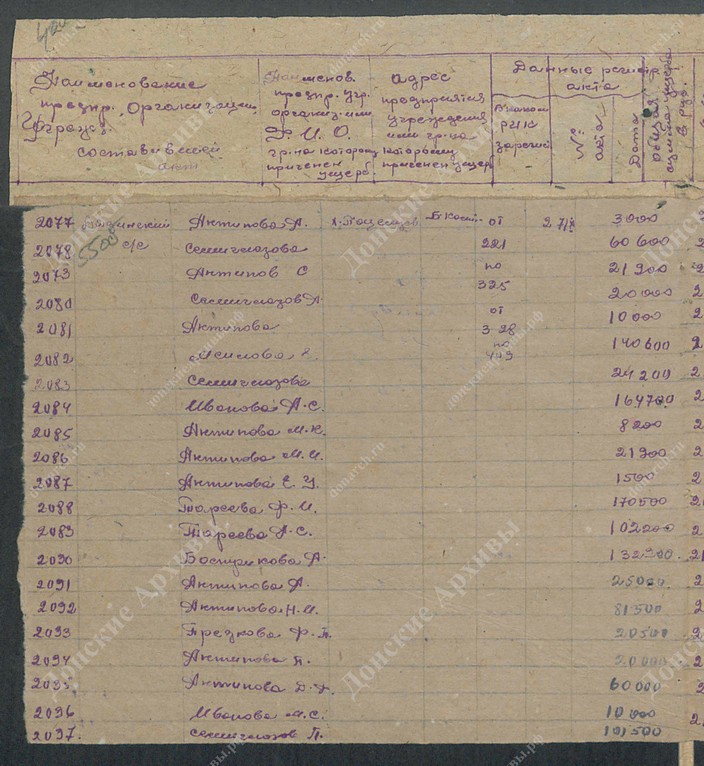 Наименование
предпр. Организации
Учрежд.
составившей
акт
Наименов.
предпр. учр.
организ. или
Ф. И. О.
гр-на которому
причинен
ущерб
адрес
предприятия
учреждения
или гр-на
которому
причинен ущерб
Данные регистр
акта
№
акта
Дата
общая
сумма ущерба
в руб.
2077 Антипова А. от 3000
5500 с/с
2078 Семиглазова 221 60 600
2079 Антипов С по 21 900
325
2080 Семиглазов А. 20 000
2081 Антипова от 10 000
3-28
2082 по 140 600
2083 Семиглазова 24 200
2084 Иванова А. С. 164700
2085 Антипова М. К. 8 200
2086 Антипова М. И. 21 900
2087 Антипова Е. 1500
2088 Тареева Ф. И. 170500
2089 Тареева А. С. 102200
2090 132300
2091 Антипова А. 25000
2092 Антипова Н. И. 81 500
2093 Ф. П. 20500
2094 Антипова П. 20 000
2095 Антипова 60 000
2096 Иванова М. С. 10 000
2097. Семиглазов П. 101 500
Донские Архивы
donarch.ru